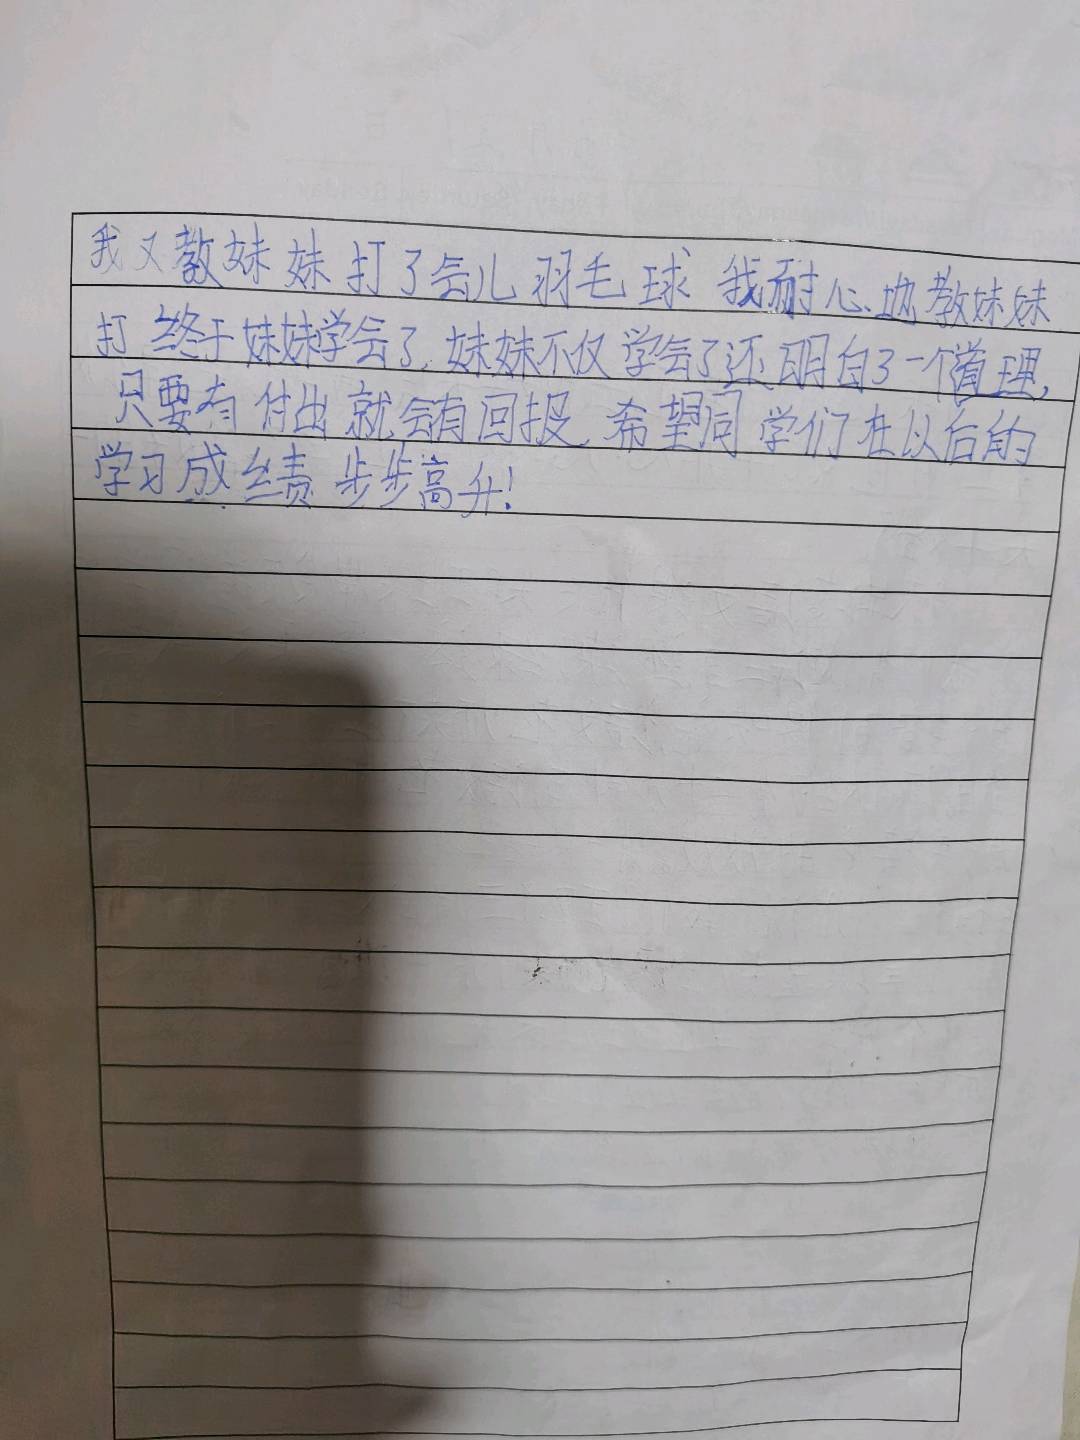 我又教妹妹打了会儿羽毛球 我耐心地教妹妹
打 终于妹妹学会了,妹妹不仅学会了还明白了一个道理,
只要有付出就会有回报,希望同学们在以后的
学习成绩步步高升!